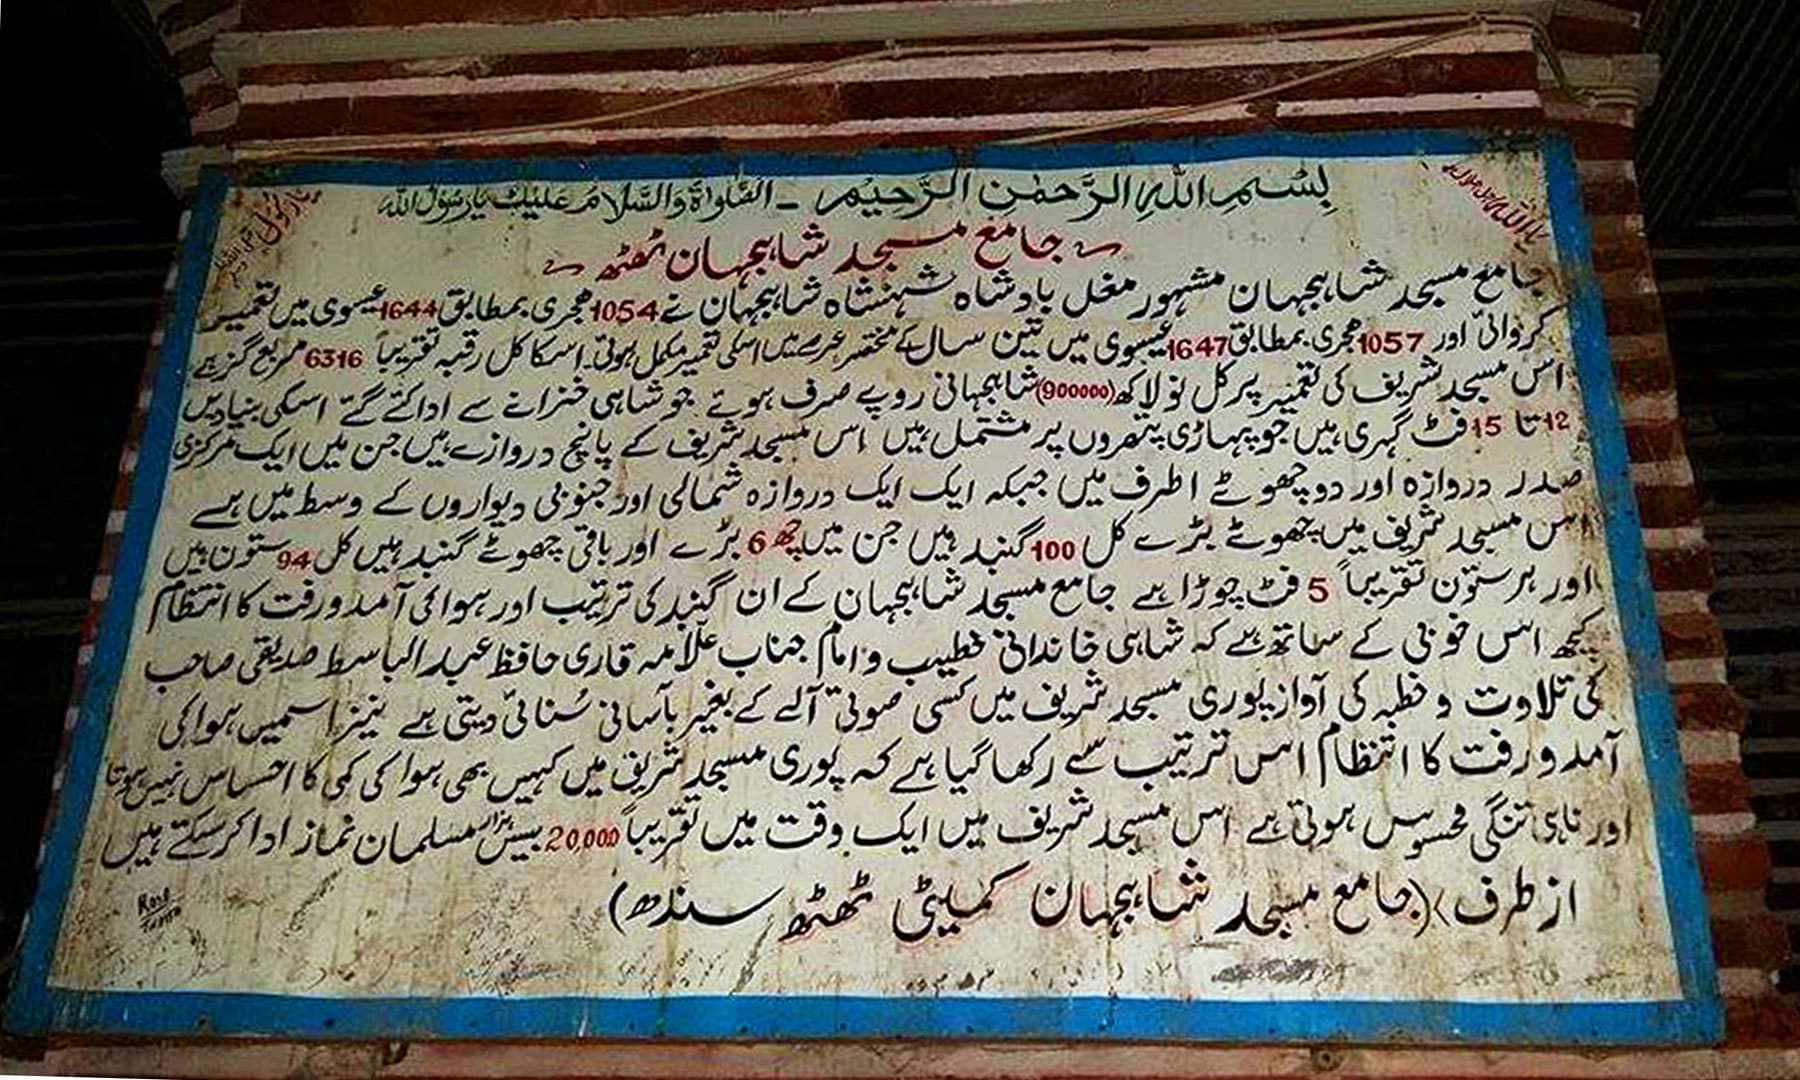 یا اللہ جل جلالہ
یا رسول اللہ صلی اللہ علیہ وسلم
بِسْمِ اللہِ الرَّحمٰنِ الرَّحِیْمِ ـ الصَّلوٰۃُ وَالسَّلَامُ عَلَیْکَ یَارَسُوْلَ اللہ
جامع مسجد شاہجہان ٹھٹھہ
جامع مسجد شاہجہان مشہور مغل بادشاہ شہنشاہ شاہجہان نے 1054 ہجری بمطابق 1644 عیسوی میں تعمیر
کروائی اور 1057 ہجری بمطابق 1647 عیسوی میں تین سال کے مختصر عرصے میں اسکی تعمیر مکمل ہوئی۔ اسکا کل رقبہ تقریباً 6316 مربع گز ہے
اس مسجد شریف کی تعمیر پر کل نو لاکھ (900000) شاہجہانی روپے صرف ہوئے جو شاہی خزانے سے ادا کئے گئے اسکی بنیادیں
12 تا 15 فٹ گہری ہیں جو پہاڑی پتھروں پر مشتمل ہیں اس مسجد شریف کے پانچ دروازے ہیں جن میں ایک مرکزی
صدر دروازہ اور دو چھوٹے اطرف میں جبکہ ایک ایک دروازہ شمالی اور جنوبی دیواروں کے وسط میں ہے
اس مسجد شریف میں چھوٹے بڑے کل 100 گنبد ہیں جن میں چھ 6 بڑے اور باقی چھوٹے گنبد ہیں کل 94 ستون ہیں
اور ہر ستون تقریباً 5 فٹ چوڑا ہے جامع مسجد شاہجہان کے ان گنبد کی ترتیب اور ہوا کی آمدورفت کا انتظام
کچھ اس خوبی کے ساتھ ہے کہ شاہی خاندانی خطیب و امام جناب علّامہ قاری حافظ عبدالباسط صدیقی صاحب
کی تلاوت و خطبہ کی آواز پوری مسجد شریف میں کسی صوتی آلے کے بغیر بآسانی سُنائی دیتی ہے نیز اسمیں ہوا کی
آمدورفت کا انتظام اس ترتیب سے رکھا گیا ہے کہ پوری مسجد شریف میں کہیں بھی ہوا کی کمی کا احساس نہیں ہوتا
اور ناہی تنگی محسوس ہوتی ہے اس مسجد شریف میں ایک وقت میں تقریباً 20,000 بیس ہزار مسلمان نماز ادا کرسکتے ہیں
از طرف (جامع مسجد شاہجہان کمیٹی ٹھٹھہ سندھ)